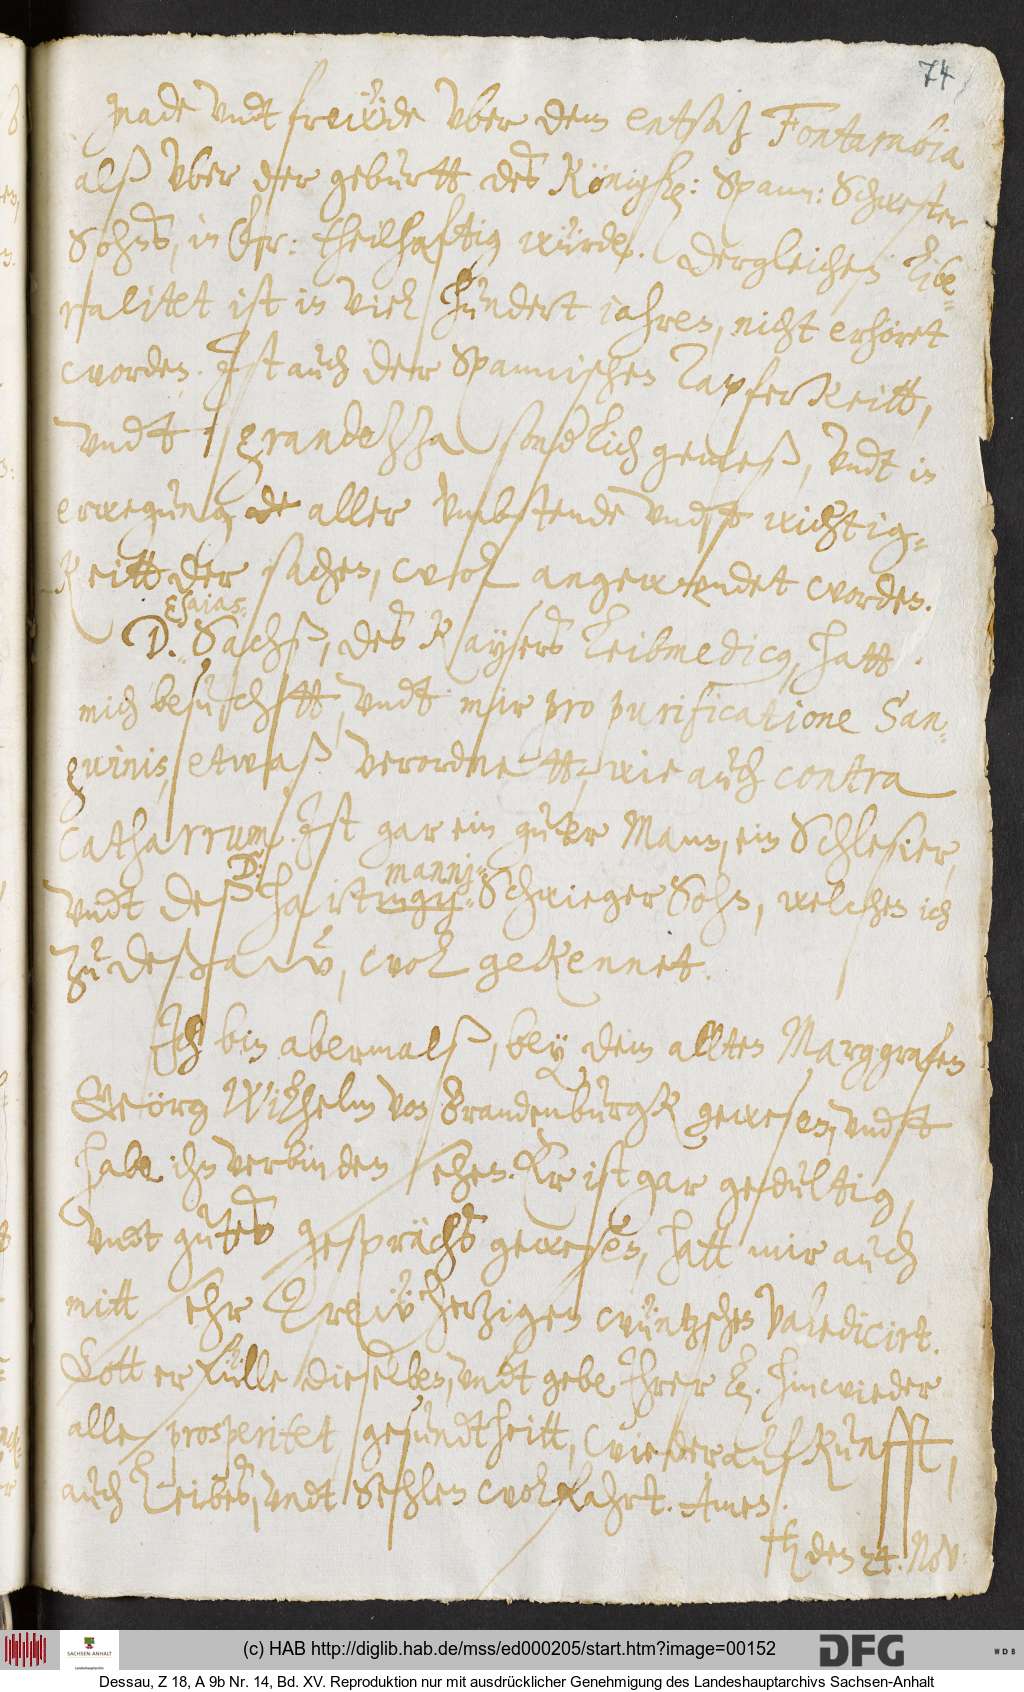 74
gnade vndt freẅde vber dem entsatz Fontarabia
alß vber der geburtt des Königs: Spann: Schwester
Sohns, in Fr: theilhaftig würde. Dergleichen Libe=
ralitet ist in viel hundert iahren, nicht erhöret
worden. Ist auch der Spannischen Tapferkeitt,
vndt grandezza sonderlich gemeß, vndt in
erwegung aller vmbstende vndt wichtig=
keitt der sachen, wol angewendet worden.
Esaias
D. Sachß, des Kaysers Leibmedicus, hatt
mich besuchtt, vndt mir pro purificatione San=
guinis, etwaß verordnett, wie auch contra
Catharrum. Ist gar ein guter Mann, ein Schlesier,
D: manni
vndt deß hartmanni Schwieger Sohn, welchen ich
zu Deßaw, wol gekennet.
Ich bin abermalß, bey dem allten Marggrafen
Geörg Wilhelm von Brandenburgk gewesen, vndt
habe ihn verbinden sehen. Er ist gar gedultig,
vndt gutes gesprächs gewesen, hatt mir auch
mitt sehr trewhertzigen wüntzschen valedicirt.
Gott erfülle dieselben, vndt gebe Ihrer L. hinwieder
alle prosperitet gesundtheitt, wiederaufkunfft,
auch Leibes, vndt Sehlen wolfahrt. Amen.
den 24. Nov:
(c) HAB http://diglib.hab.de/mss/ed000205/start.htm?image=00152
SACHSEN-ANHALT
Landeshauptarchiv
DFG
WDB
Dessau, Z 18, A 9b Nr. 14, Bd. XV. Reproduktion nur mit ausdrücklicher Genehmigung des Landeshauptarchivs Sachsen-Anhalt